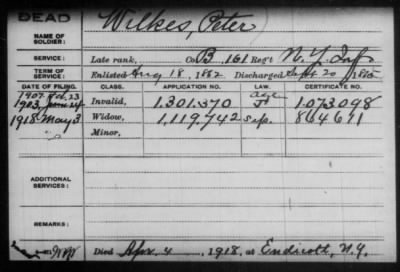 DEAD
Wilkes, Peter
NAME OF SOLDIER:
SERVICE: Late rank, Co. B, 161 Reg't N. Y. Inf
TERM OF SERVICE: Enlisted Aug 18, 1862 Discharged Sept. 20 1865
DATE OF FILING. CLASS. APPLICATION NO. LAW. CERTIFICATE NO.
1907 Feb. 23 Age
1903, June 24 Invalid, 1.301.370 1.073.098
1918 May 3 Widow, 1.119.742 Sep. 864671
Minor,
ADDITIONAL SERVICES:
REMARKS:
Died Apr. 4, 1918, at Endicott, N.Y.